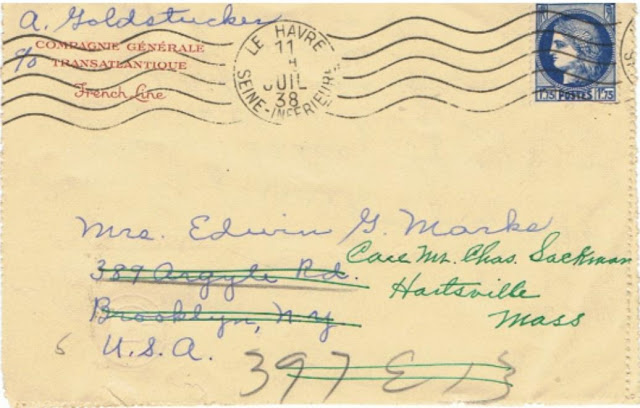 A. Goldstucker
c/o
COMPAGNIE GÉNÉRALE
TRANSATLANTIQUE
French Line
LE HAVRE
11
4
JUIL
38
SEINE-INFÉRIEURE
1f75 POSTES 1f75
Mrs. Edwin G. Marks
389 Argyle Rd.
Brooklyn, N.Y
U.S.A.
Care Mr. Chas. Sackman
Hartsville
Mass
6
397 E 13